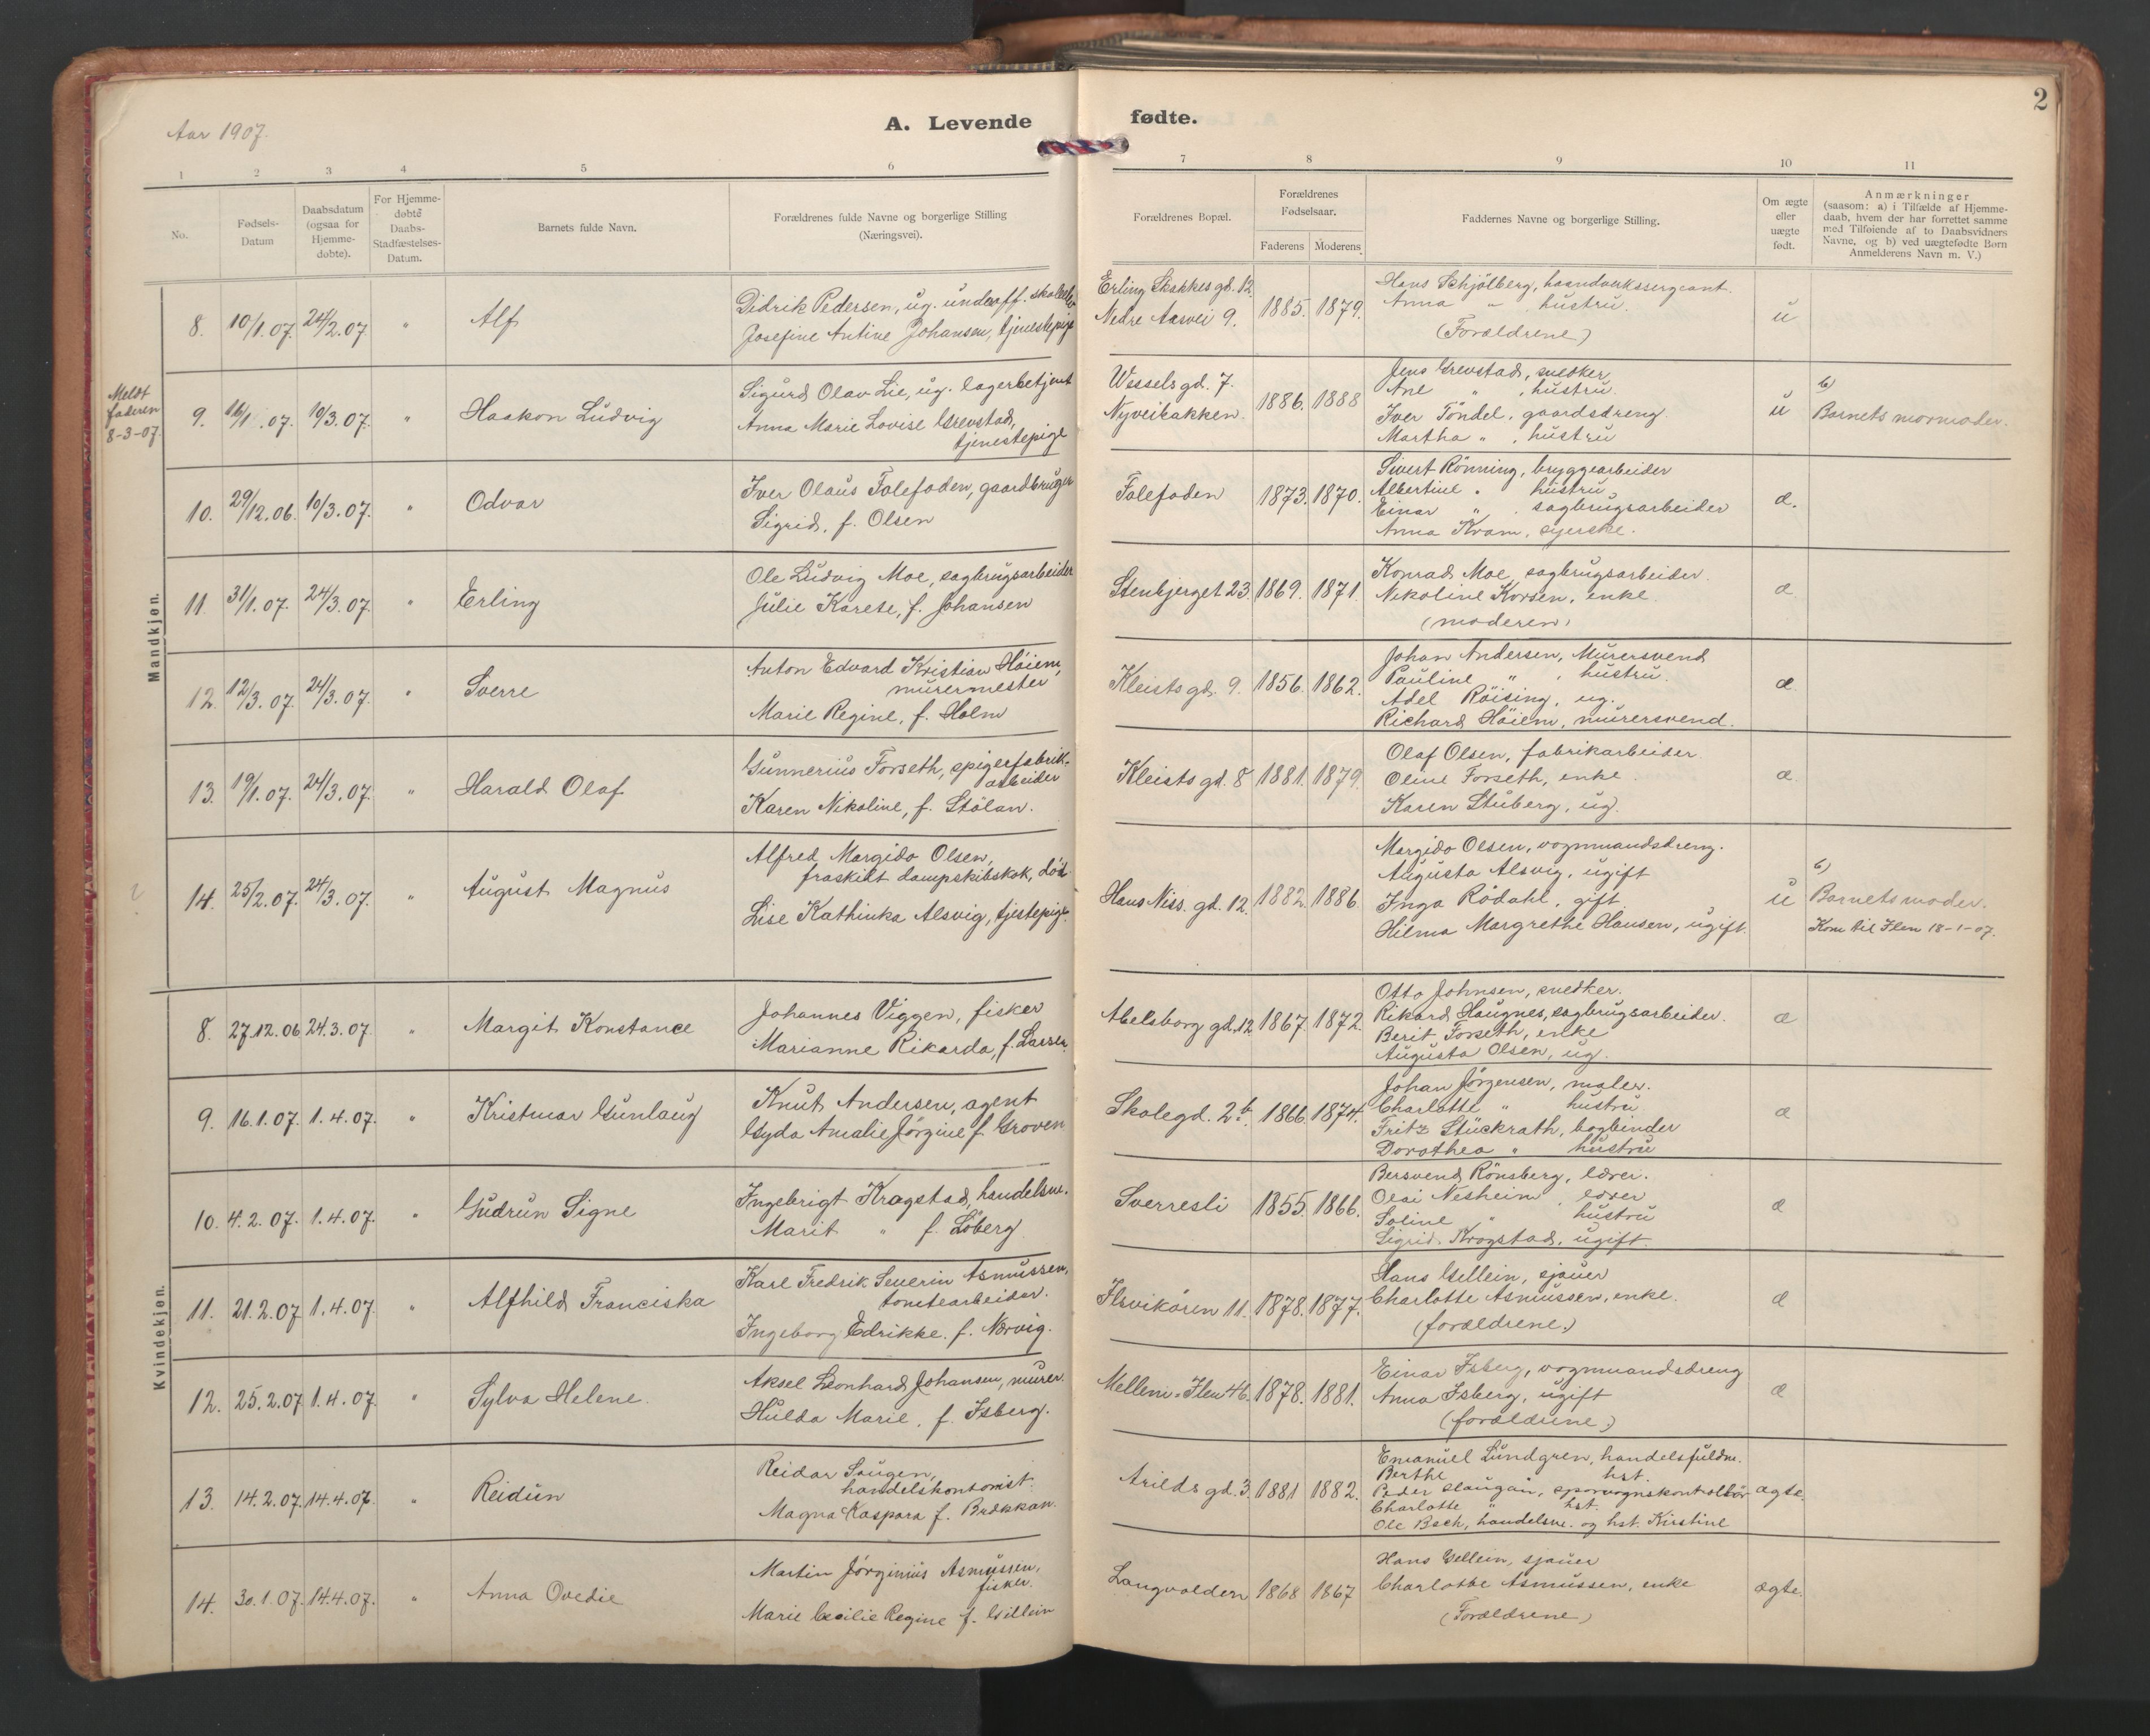 Aar 1907.
A. Levende fødte.
2
1 2 3 4 5 6 7 8 9 10 11
No.
Fødsels-
Datum
Daabsdatum
(ogsaa for
Hjemme-
døbte).
For Hjemme-
døbte
Daabs-
Stadfæstelses-
Datum.
Barnets fulde Navn.
Forældrenes fulde Navne og borgerlige Stilling
(Næringsvei).
Forældrenes Bopæl.
Forældrenes
Fødselsaar.
Faderens Moderens
Faddernes Navne og borgerlige Stilling.
Om ægte
eller
uægte
født.
Anmærkninger
(saasom: a) i Tilfælde af Hjemme-
daab, hvem der har forrettet samme
med Tilføiende af to Daabsvidners
Navne, og b) ved uægtefødte Børn
Anmelderens Navn m. V.)
Mandkjøn.
8. 10/1.07. 24/2.07. " Alf
Didrik Pedersen, ug. underoff. skoleelev
Josefine Antine Johansen, tjenestepige
Erling Skakkes gd. 12.
Nedre Aasvei 9.
1885. 1879.
Hans Schjölberg, haandverkssergeant.
Anna " , hustru.
(Forældrene)
u
Meldt
faderen
8-3-07.
9. 16/1.07. 10/3.07. " Haakon Ludvig
Sigurd Olav Lie, ug. lagerbetjent
Anna Marie Lovise Grevstad,
tjenestepige
Wessels gd. 7.
Nyveibakken.
1886. 1888
Jens Grevstad, snedker
Ane " , hustru.
Iver Töndel, gaardsdreng.
Martha " , hustru
u
b)
Barnets mormoder.
10. 29/12.06. 10/3.07. " Odvar
Iver Olaus Folefoden, gaardbruger
Sigrid, f. Olsen
Folefoden
1873. 1870.
Sivert Rönning, bryggearbeider
Albertine " hustru
Einar " . sagbrugsarbeider
Anna Kvam, syerske.
æ.
11. 31/1.07. 24/3.07. " Erling
Ole Ludvig Moe, sagbrugsarbeider
Julie Karete, f. Johansen
Stenbjerget 23.
1869. 1871.
Konrad Moe, sagbrugsarbeider.
Nikoline Korsen, enke.
(moderen)
æ
12. 12/3.07. 24/3.07. " Sverre
Anton Edvard Kristian Höiem,
murermester
Marie Regine, f. Holm
Kleists gd. 9.
1856. 1862.
Johan Andersen, Murersvend
Pauline " , hustru.
Adel Röising, ug.
Richard Höiem, murersvend.
æ
13. 19/1.07. 24/3.07. " Harald Olaf
Gunnerius Forseth, spigerfabrik-
arbeider
Karen Nikoline, f. Stölan.
Kleists gd. 8
1881. 1879.
Olaf Olsen, fabrikarbeider
Oline Forseth, enke.
Karen Stuberg, ug.
æ
14. 25/2.07. 24/3.07. " August Magnus
Alfred Margido Olsen,
fraskilt dampskibskok, död
Lise Kathinka Alsvig, tjestepige.
Hans Niss. gd. 12.
1882. 1886.
Margido Olsen, vognmandsdreng.
Augusta Alsvig, ugift
Inga Rödahl, gift.
Hilma Margrethe Hansen, ugift.
u
b)
Barnets moder.
Kom til Ilen 18-1-07.
Kvindekjøn.
8. 27.12.06 24.3.07. " Margit Konstance
Johannes Viggen, fisker
Marianne Rikarda, f. Larsen.
Abelsborg gd. 12
1867. 1872.
Otto Johnsen, snedker.
Rikard Haugnes, sagbrugsarbeider.
Berit Forseth, enke
Augusta Olsen, ug.
æ
9. 16.1.07. 1.4.07. " Kristmar Gunlaug
Knut Andersen, agent
Gyda Amalie Jörgine f. Groven
Skolegd. 2b.
1866. 1874.
Johan Jörgensen, maler.
Charlotte " hustru
Fritz Stückrath, bogbinder
Dorothea " hustru
æ
10. 4.2.07. 1.4.07. " Gudrun Signe
Ingebrigt Kragstad, handelsm.
Marit " f. Löberg.
Sverresli
1855. 1866.
Bersvend Rönsberg, lærer.
Olai Nesheim, lærer
Soline " hustru
Sigrid. Krogstad, ugift.
æ
11. 21.2.07 1.4.07. " Alfhild Franciska
Karl Fredrik Severin Asmussen,
tomtearbeider.
Ingeborg Edrikke. f. Nærvig.
Ilsvikören 11.
1878. 1877.
Hans Gellein, sjauer
Charlotte Asmussen, enke.
(forældrene.)
æ
12. 25.2.07 1.4.07. " Sylva Helene.
Aksel Leonhard Johansen, murer.
Hulda Marie, f. Isberg.
Mellem-Ilen 46.
1878. 1881.
Einar Isberg, vognmandsdreng
Anna Isberg, ugift
(forældrene.)
æ
13. 14.2.07 14.4.07. " Reidun
Reidar Saugen,
handelskontorist.
Magna Kaspara f. Brækkan.
Arilds gd. 3.
1881 1882.
Emanuel Lundgren, handelsfuldm.
Berthe hst.
Peder Slaugan, sporvognskontrollör
Charlotte " hst.
Ole Bach, handelsm. og hst. Kirstine
ægte.
14. 30.1.07. 14.4.07. " Anna Ovedie
Martin Jörginius Asmussen,
fisker.
Marie Cecilie Regine f. Gellein
Langvolden
1868 1867
Hans Gellein, sjauer
Charlotte Asmussen, enke
(Forældrene)
ægte.